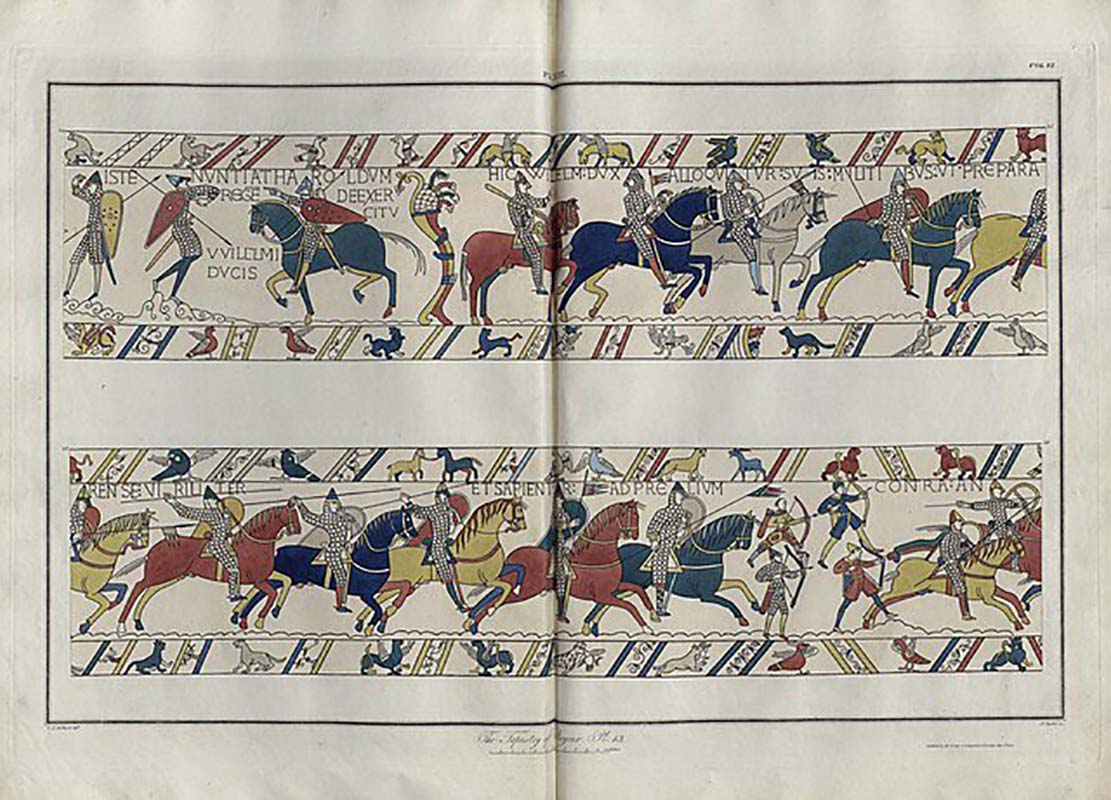 VOL. VI
ISTE NVNTIAT HAROLDVM
REGE DE EXER
CITV
VVILELMI
DVCIS
HIC WILELM: DVX ALLOQVITVR: SVIS: MILITIBVS: VT: PREPARA
REN SE: VIRILITER ET SAPIENTER: AD PRELIVM CONTRA: AN
The Tapestry of Bayeux. Pl. 13.